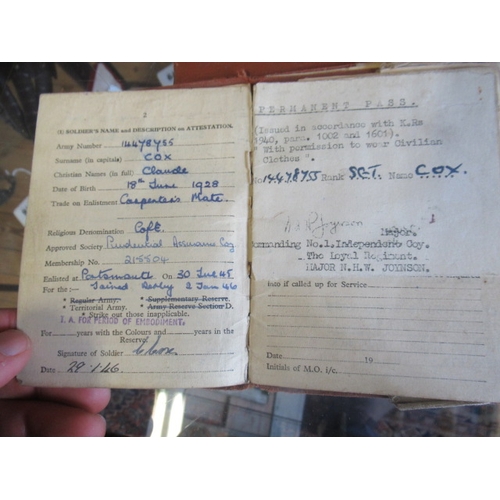 2
(I) SOLDIER'S NAME and DESCRIPTION on ATTESTATION.
Army Number 14478755
Surname (in capitals) COX
Christian Names (in full) Claude
Date of Birth 18th June 1928
Trade on Enlistment Carpenter's Mate.
Religious Denomination CofE
Approved Society Prudential Assurance Coy
Membership No. 215504
Enlisted at Portsmouth On 30 Jul 45
For the :— Joined Derby 2 Jan 46
* Regular Army. * Supplementary Reserve.
* Territorial Army. * Army Reserve Section D.
* Strike out those inapplicable.
T.A. FOR PERIOD OF EMBODIMENT.
For years with the Colours and years in the
Reserve.
Signature of Soldier C Cox.
Date 29.1.46
PERMANENT PASS.
(Issued in accordance with K.Rs
1940, para. 1002 and 1601).
" With permission to wear Civilian
Clothes ".
No 14478755 Rank SGT. Name COX.
Joynson Major.
Commanding No.1.Independent Coy.
The Loyal Regiment.
MAJOR N.H.W. JOYNSON.
into if called up for Service
Date 19
Initials of M.O. i/c.